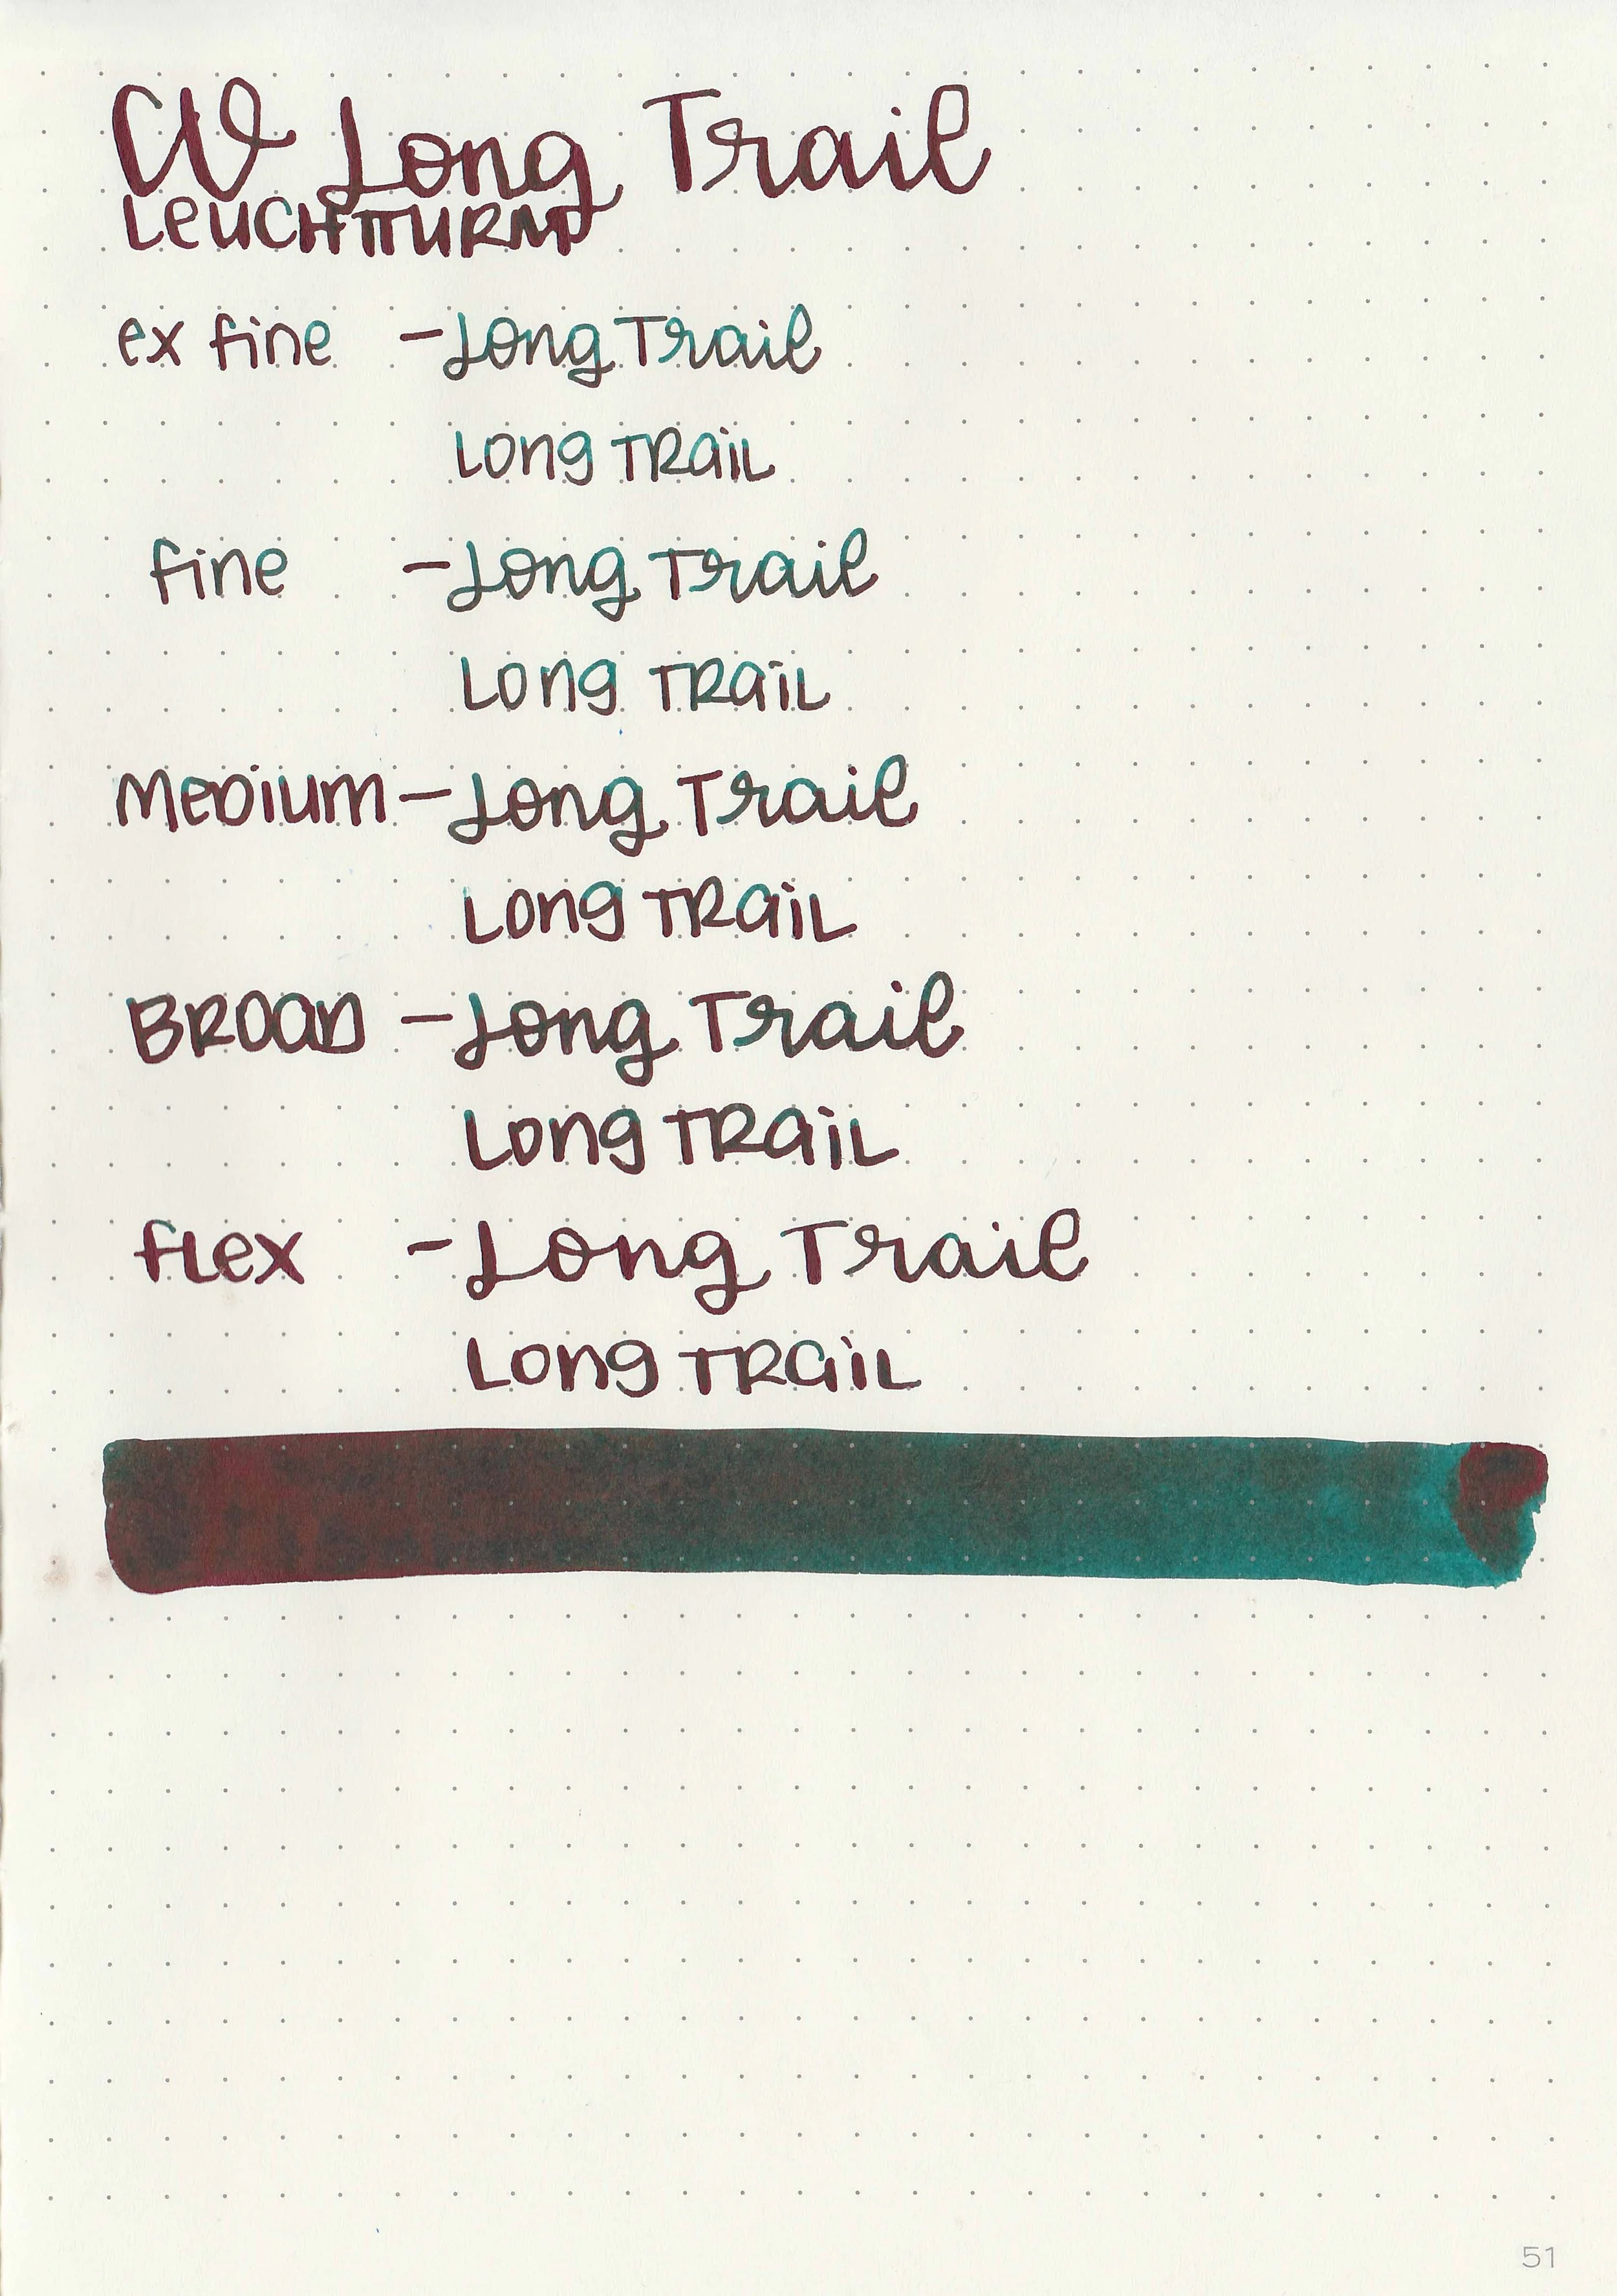 CW Long Trail
LEUCHTTURM
ex fine - Long Trail
Long TRaiL
fine - Long Trail
Long TRaiL
MeDium - Long Trail
Long TRaiL
BROaD - Long Trail
Long TRaiL
fLex - Long Trail
Long TRaiL
51